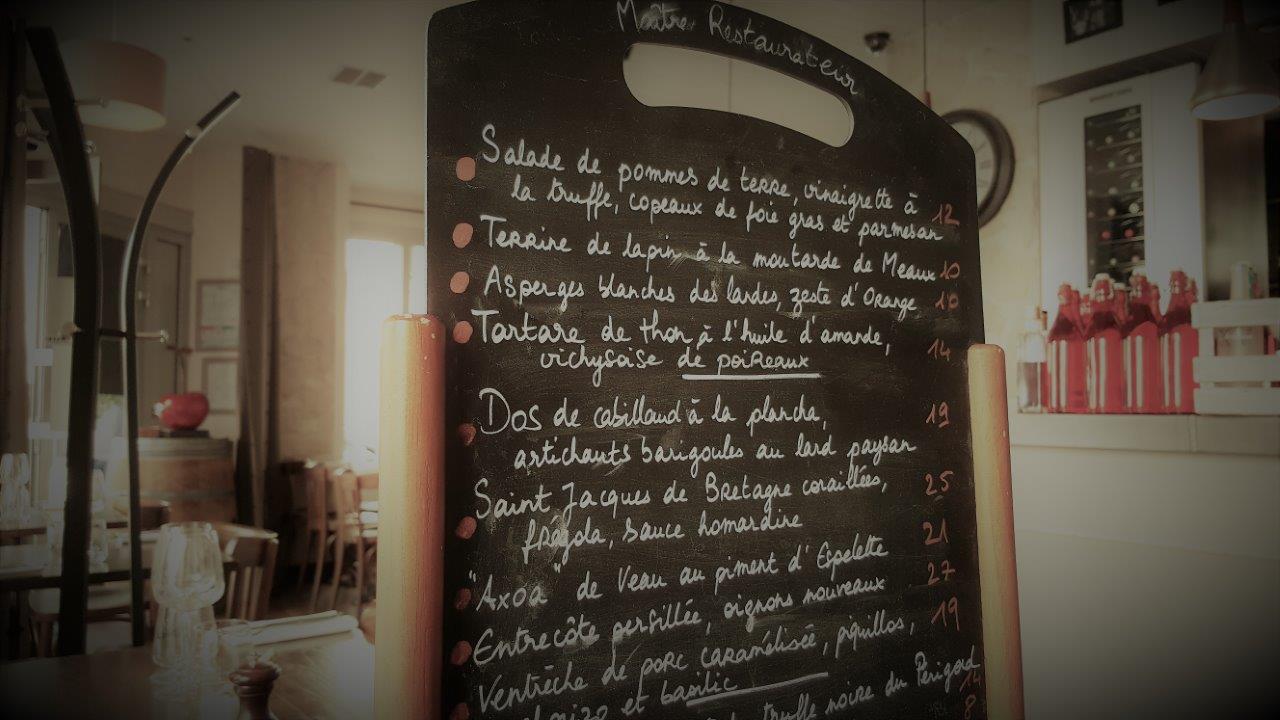 Maître Restaurateur
Salade de pommes de terre, vinaigrette à
la truffe, copeaux de foie gras et parmesan 12
Terrine de lapin à la moutarde de Meaux 10
Asperges blanches des landes, zeste d'Orange 10
Tartare de thon à l'huile d'amande, 14
vichysoise de poireaux
Dos de cabillaud à la plancha, 19
artichauts barigoules au lard paysan
Saint Jacques de Bretagne coraillées, 25
frégola, sauce homardine
"Axoa" de Veau au piment d'Espelette 21
Entrecôte persillée, oignons nouveaux 27
Ventrèche de porc caramélisée, piquillos, 19
et basilic
truffe noire du Périgord 14
8